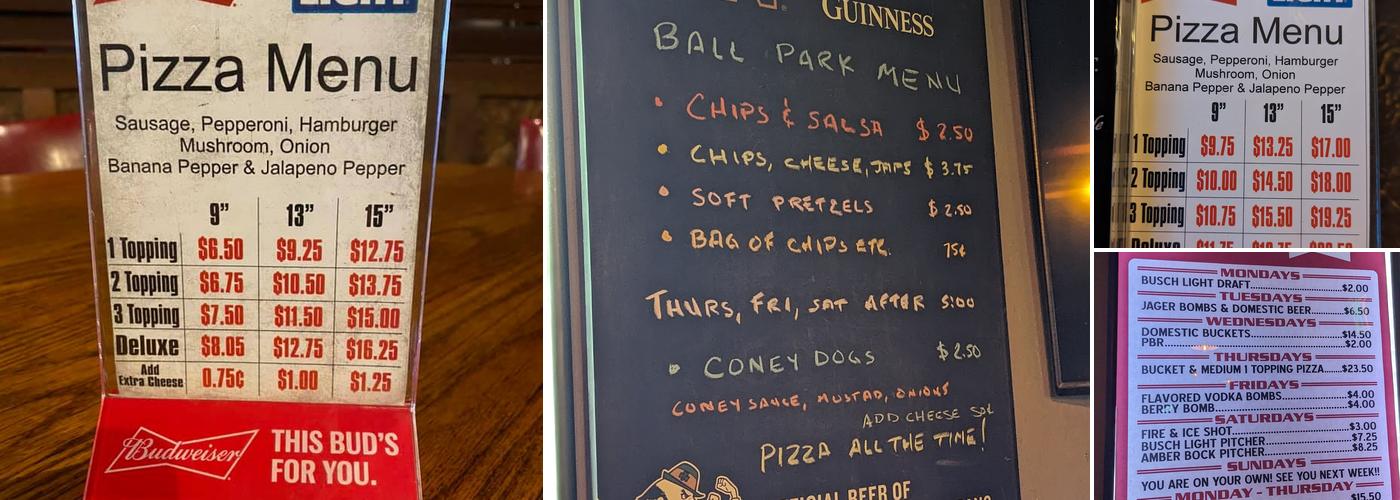 Pizza Menu
Sausage, Pepperoni, Hamburger
Mushroom, Onion
Banana Pepper & Jalapeno Pepper
9” 13” 15”
1 Topping $6.50 $9.25 $12.75
2 Topping $6.75 $10.50 $13.75
3 Topping $7.50 $11.50 $15.00
Deluxe $8.05 $12.75 $16.25
Add
Extra Cheese 0.75¢ $1.00 $1.25
Budweiser
THIS BUD'S
FOR YOU.
GUINNESS
BALL PARK MENU
• CHIPS & SALSA $2.50
• CHIPS, CHEESE, JAPS $3.75
• SOFT PRETZELS $2.50
• BAG OF CHIPS ETC. 75¢
THURS, FRI, SAT AFTER 5:00
• CONEY DOGS $2.50
CONEY SAUCE, MUSTAD, ONIONS
ADD CHEESE 50¢
PIZZA ALL THE TIME!
BEER OF
Pizza Menu
Sausage, Pepperoni, Hamburger
Mushroom, Onion
Banana Pepper & Jalapeno Pepper
9” 13” 15”
1 Topping $9.75 $13.25 $17.00
2 Topping $10.00 $14.50 $18.00
3 Topping $10.75 $15.50 $19.25
Deluxe
MONDAYS
BUSCH LIGHT DRAFT $2.00
TUESDAYS
JAGER BOMBS & DOMESTIC BEER $6.50
WEDNESDAYS
DOMESTIC BUCKETS $14.50
PBR $2.00
THURSDAYS
BUCKET & MEDIUM 1 TOPPING PIZZA $23.50
FRIDAYS
FLAVORED VODKA BOMBS $4.00
BERRY BOMB $4.00
SATURDAYS
FIRE & ICE SHOT $3.00
BUSCH LIGHT PITCHER $7.25
AMBER BOCK PITCHER $8.25
SUNDAYS
YOU ARE ON YOUR OWN! SEE YOU NEXT WEEK!!
MONDAY - THURSDAY
$15.50